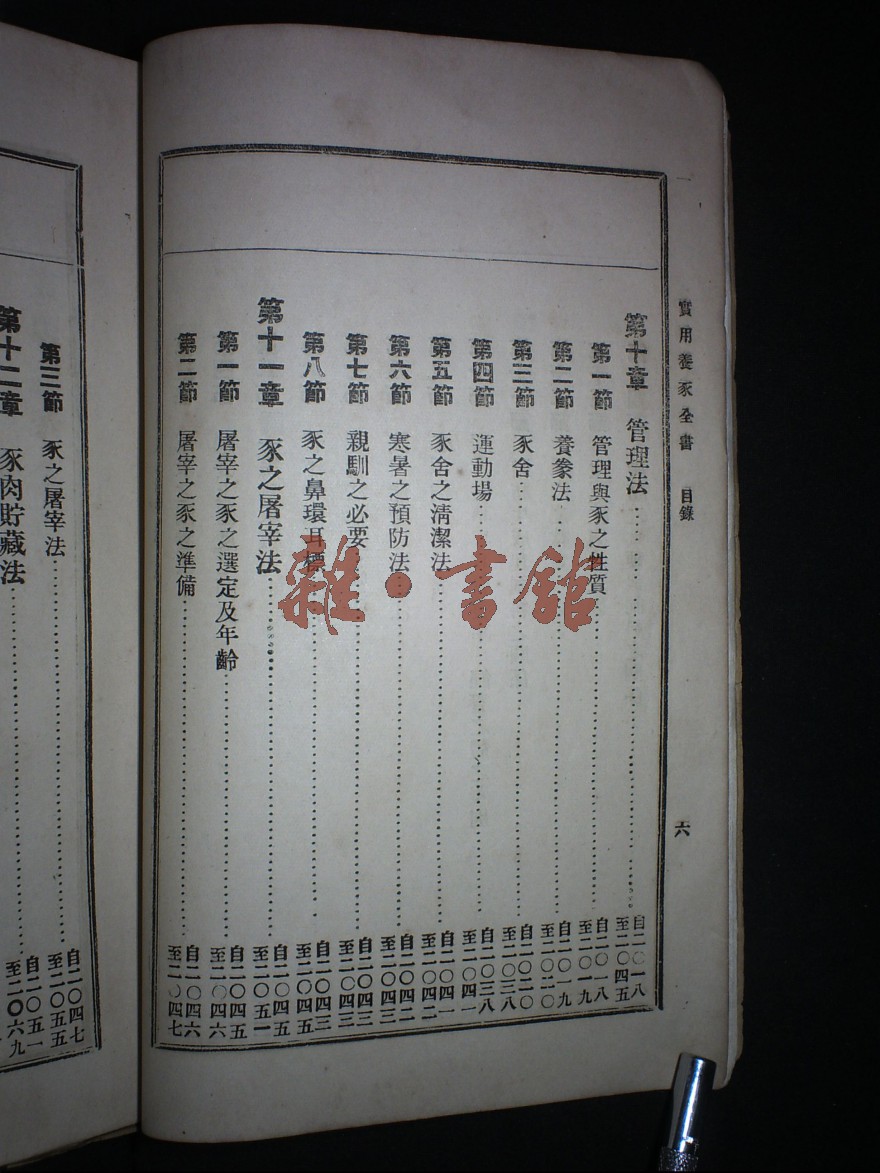 實用養豕全書 目錄 六
第十章 管理法……自二〇一八至二〇四五
第一節 管理與豕之性質……自二〇一八至二〇一九
第二節 養豢法……自二〇一九至二〇二〇
第三節 豕舍……自二〇二〇至二〇三八
第四節 運動場……自二〇三八至二〇四一
第五節 豕舍之清潔法……自二〇四一至二〇四二
第六節 寒暑之預防法……自二〇四二至二〇四三
第七節 親馴之必要……自二〇四三至二〇四三
第八節 豕之鼻環耳標……自二〇四三至二〇四五
第十一章 豕之屠宰法……自二〇四五至二〇五一
第一節 屠宰之豕之選定及年齡……自二〇四五至二〇四六
第二節 屠宰之豕之準備……自二〇四六至二〇四七
第三節 豕之屠宰法……自二〇四七至二〇五五
第十二章 豕肉貯藏法……自二〇五一至二〇六九
雜·書館